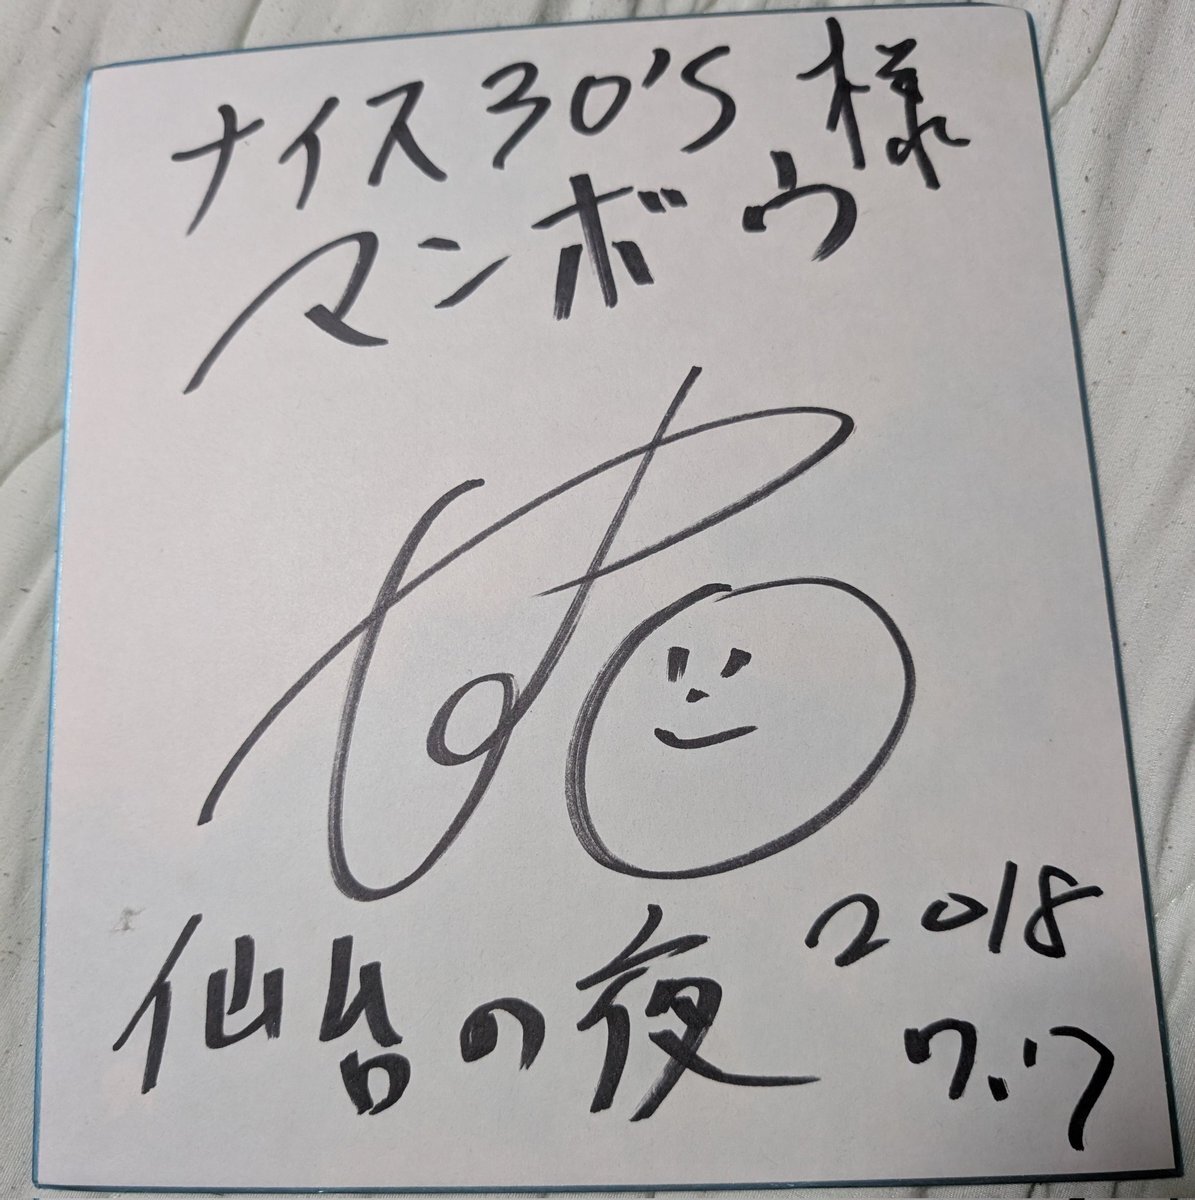 ナイス30's 様
マンボウ
仙台の夜
2018
7.17